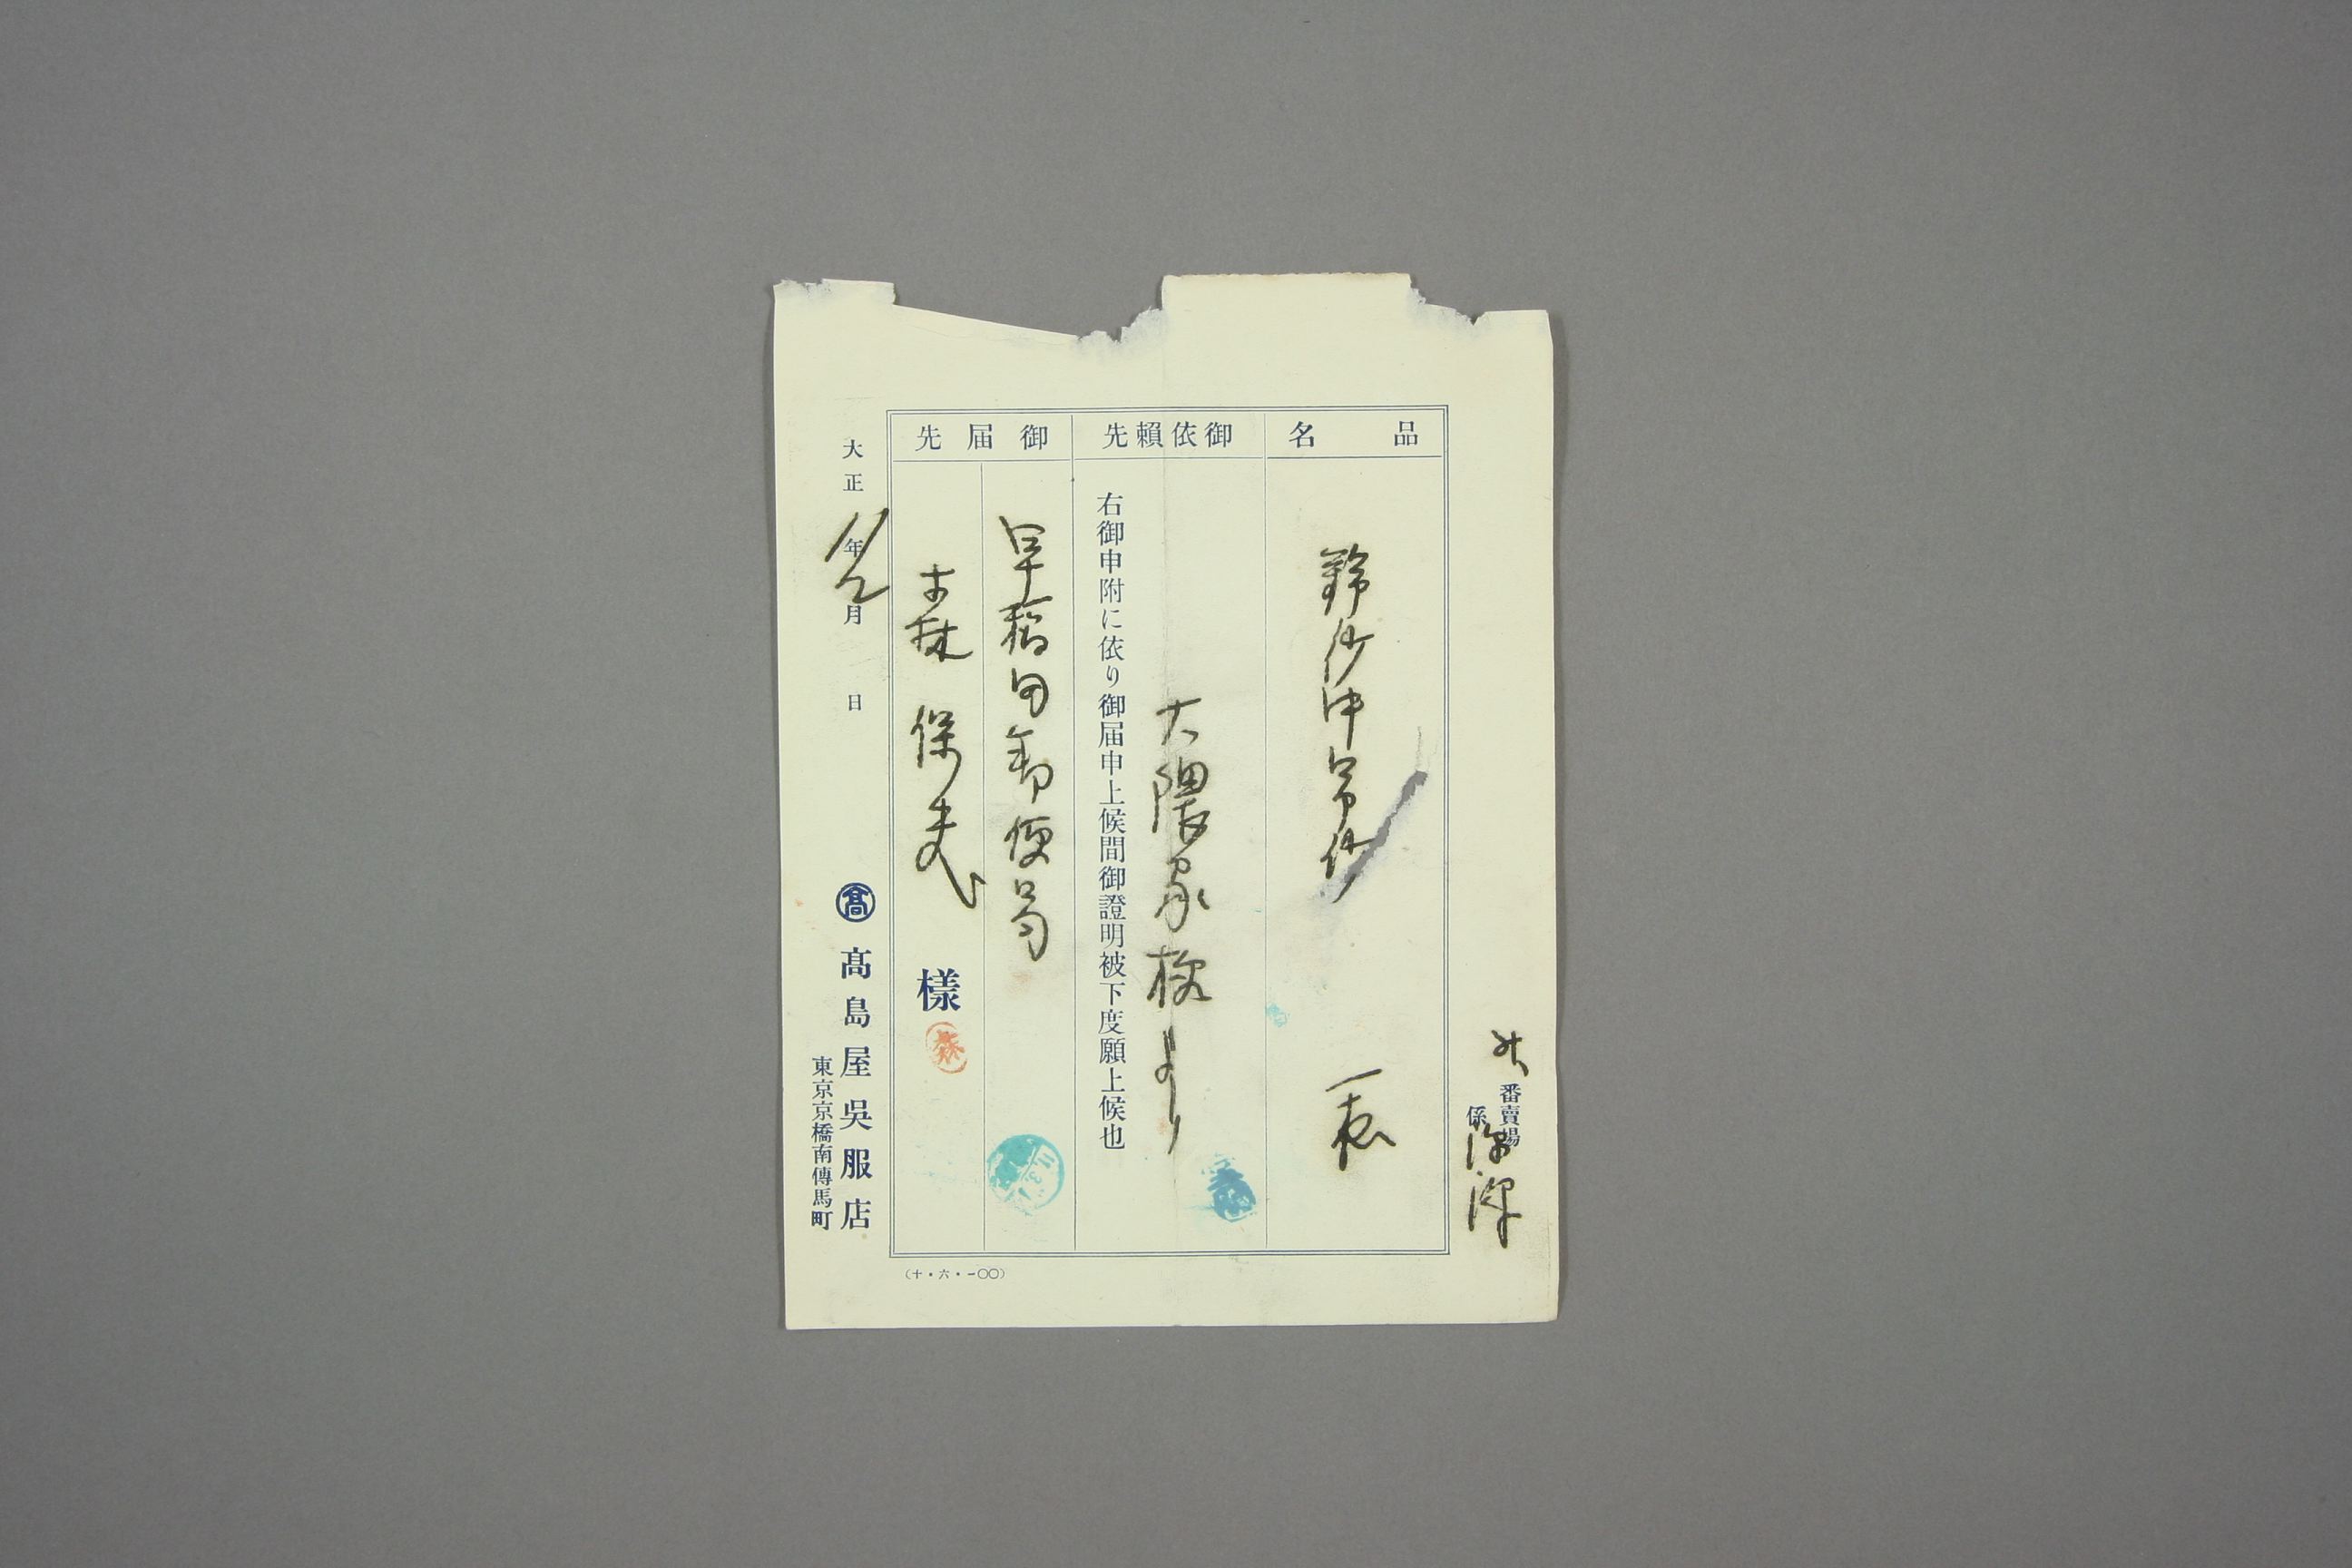 番賣場
係
品名
一表
御依賴先
大隈家様より
右御申附に依り御届申上候間御證明被下度願上候也
御届先
早稲田郵便局
保夫
樣
森
大正11年2月 日
髙
髙島屋吳服店
東京京橋南傳馬町
(十・六・一〇〇)